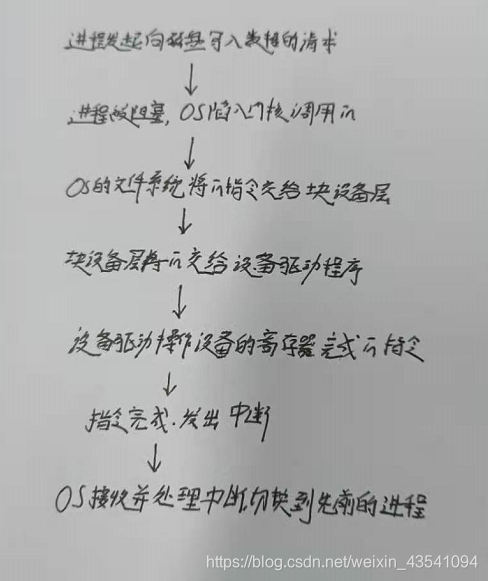 进程发起向磁盘写入数据的请求
↓
进程被阻塞,OS陷入内核调用in
↓
OS的文件系统将in指令交给块设备层
↓
块设备层将in交给设备驱动程序
↓
设备驱动操作设备的寄存器完成in指令
↓
指令完成.发出中断
↓
OS接收并处理中断切换到先前的进程
https://blog.csdn.net/weixin_43541094